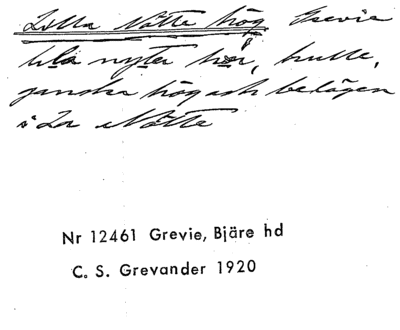 Lilla Nötte hög Grevie
hög, kulle,
ganska hög och belägen
i La Nötte
Nr 12461 Grevie, Bjäre hd
C. S. Grevander 1920